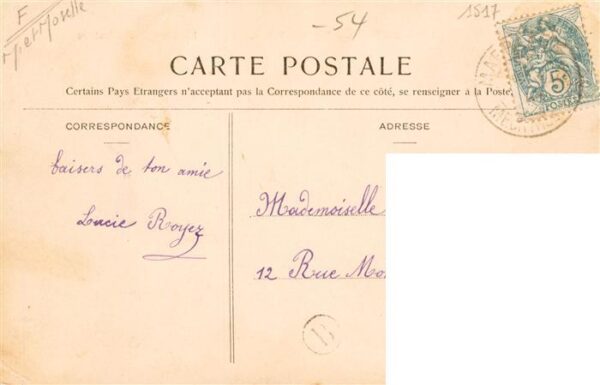 F
M et Moselle
-54
1517
CARTE POSTALE
Certains Pays Etrangers n'acceptant pas la Correspondance de ce côté, se renseigner à la Poste.
CORRESPONDANCE
ADRESSE
5c
POSTES
baisers de ton amie
Lucie Royez
Mademoiselle
12 Rue Mo
B